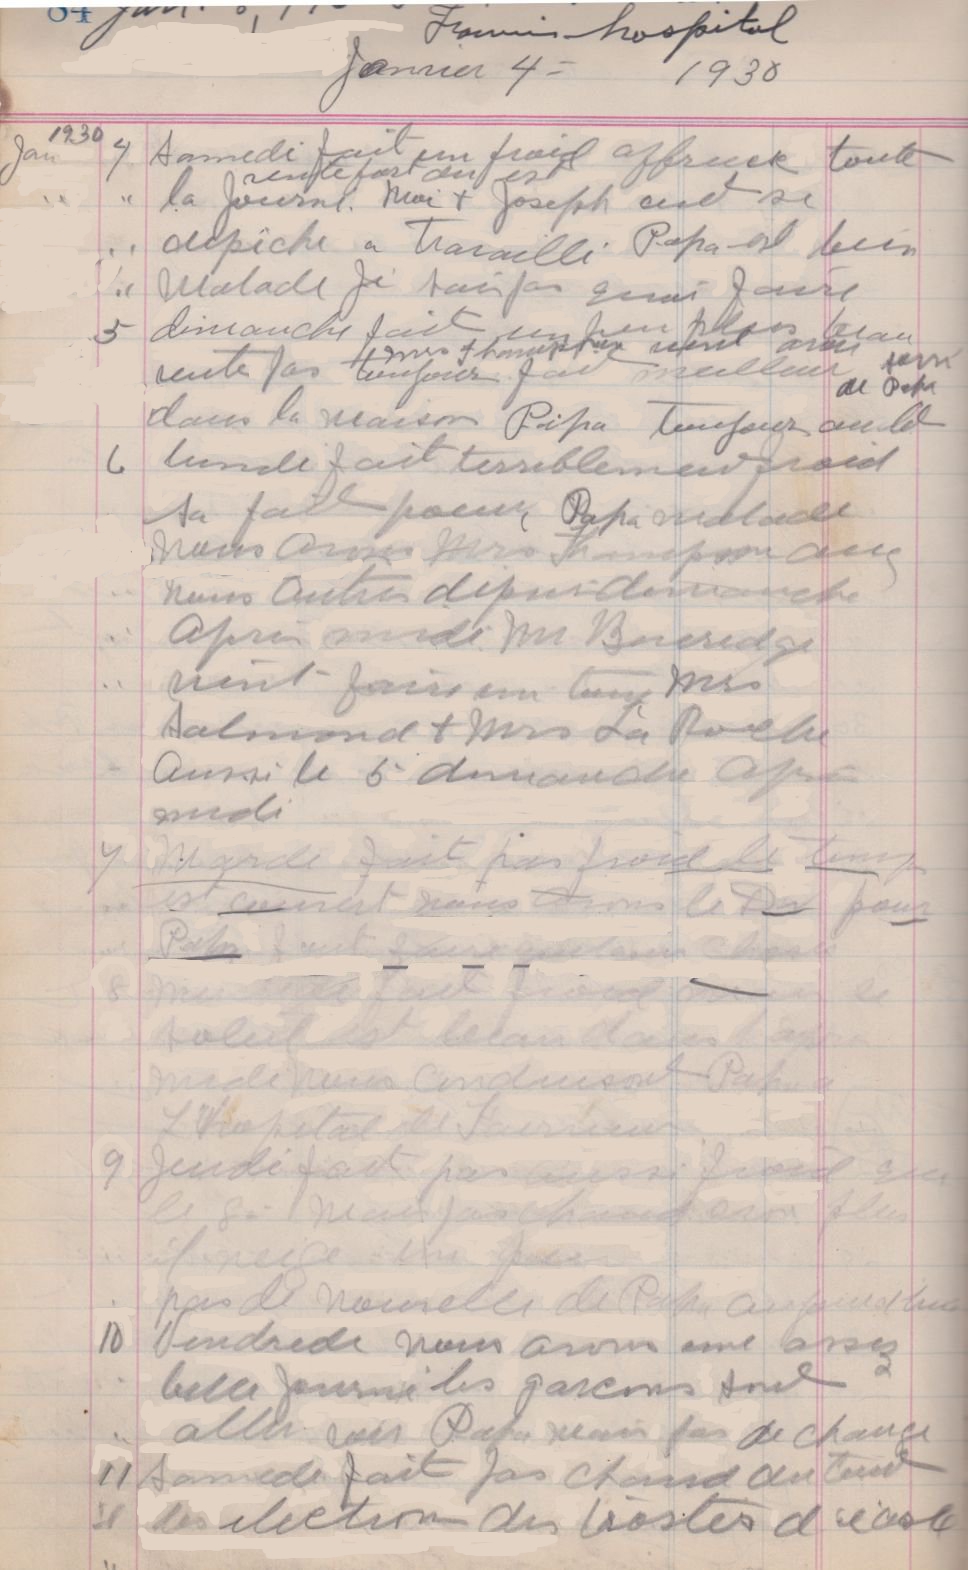 84 Jan.
hospital
Janvier 4 = 1930
1930
Jan 4 Samedi fait un froid affreux toute
vente fort du est
la Journé. Moi + Joseph se
depêche a Travaillé Papa est bein
Malade Je sais pas quoi faire
5 dimanche fait un peu plus beau
Mrs Thompson vient avoir soin
de Papa
vente pas toujour fait meilleur
dans la maison Papa toujour au lit
6 lundi fait terriblement froid
sa fait poeur, Papa malade
Nous avons Mrs Thompson avec
nous autres depuis dimanche
Apres midi. Mr Boveredge
vient faire un tour Mrs
Salmond + Mrs La Roche
Aussi le 5 dimanche apre
midi
7 Marde fait pas froid le temp
est couvert nous avons le Dr pour
Papa faut faire quelque chose
8 fait froid le
soleil est beau dans l'apre
midi nous conduisont Papa a
L'Hopital de
9 Jeudi fait pas aussi froid que
le 8- Mais pas chaud non plus
il neige un peu
pas de nouvelle de Papa aujourd'hui
10 Vendrede nous avons une assez
belle journé les garcons sont
aller voir Papa mais pas de change
11 Samede fait pas chaud du tout
" les election des trostés d'école